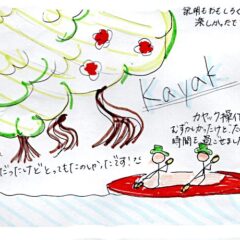 説明もおもしろく
楽しかったで
Kayak
カヤック操作
むずかしかったけどこた
時間を過ごせまし
だったけどとってもたのしかったです!